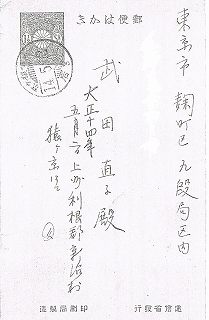 郵便はかき
東京市 麹町区 九段局区内
武田直子殿
大正十四年
五月六日 上州利根郡新治村
猿ヶ京ニテ
逓信省発行
印刷局製造